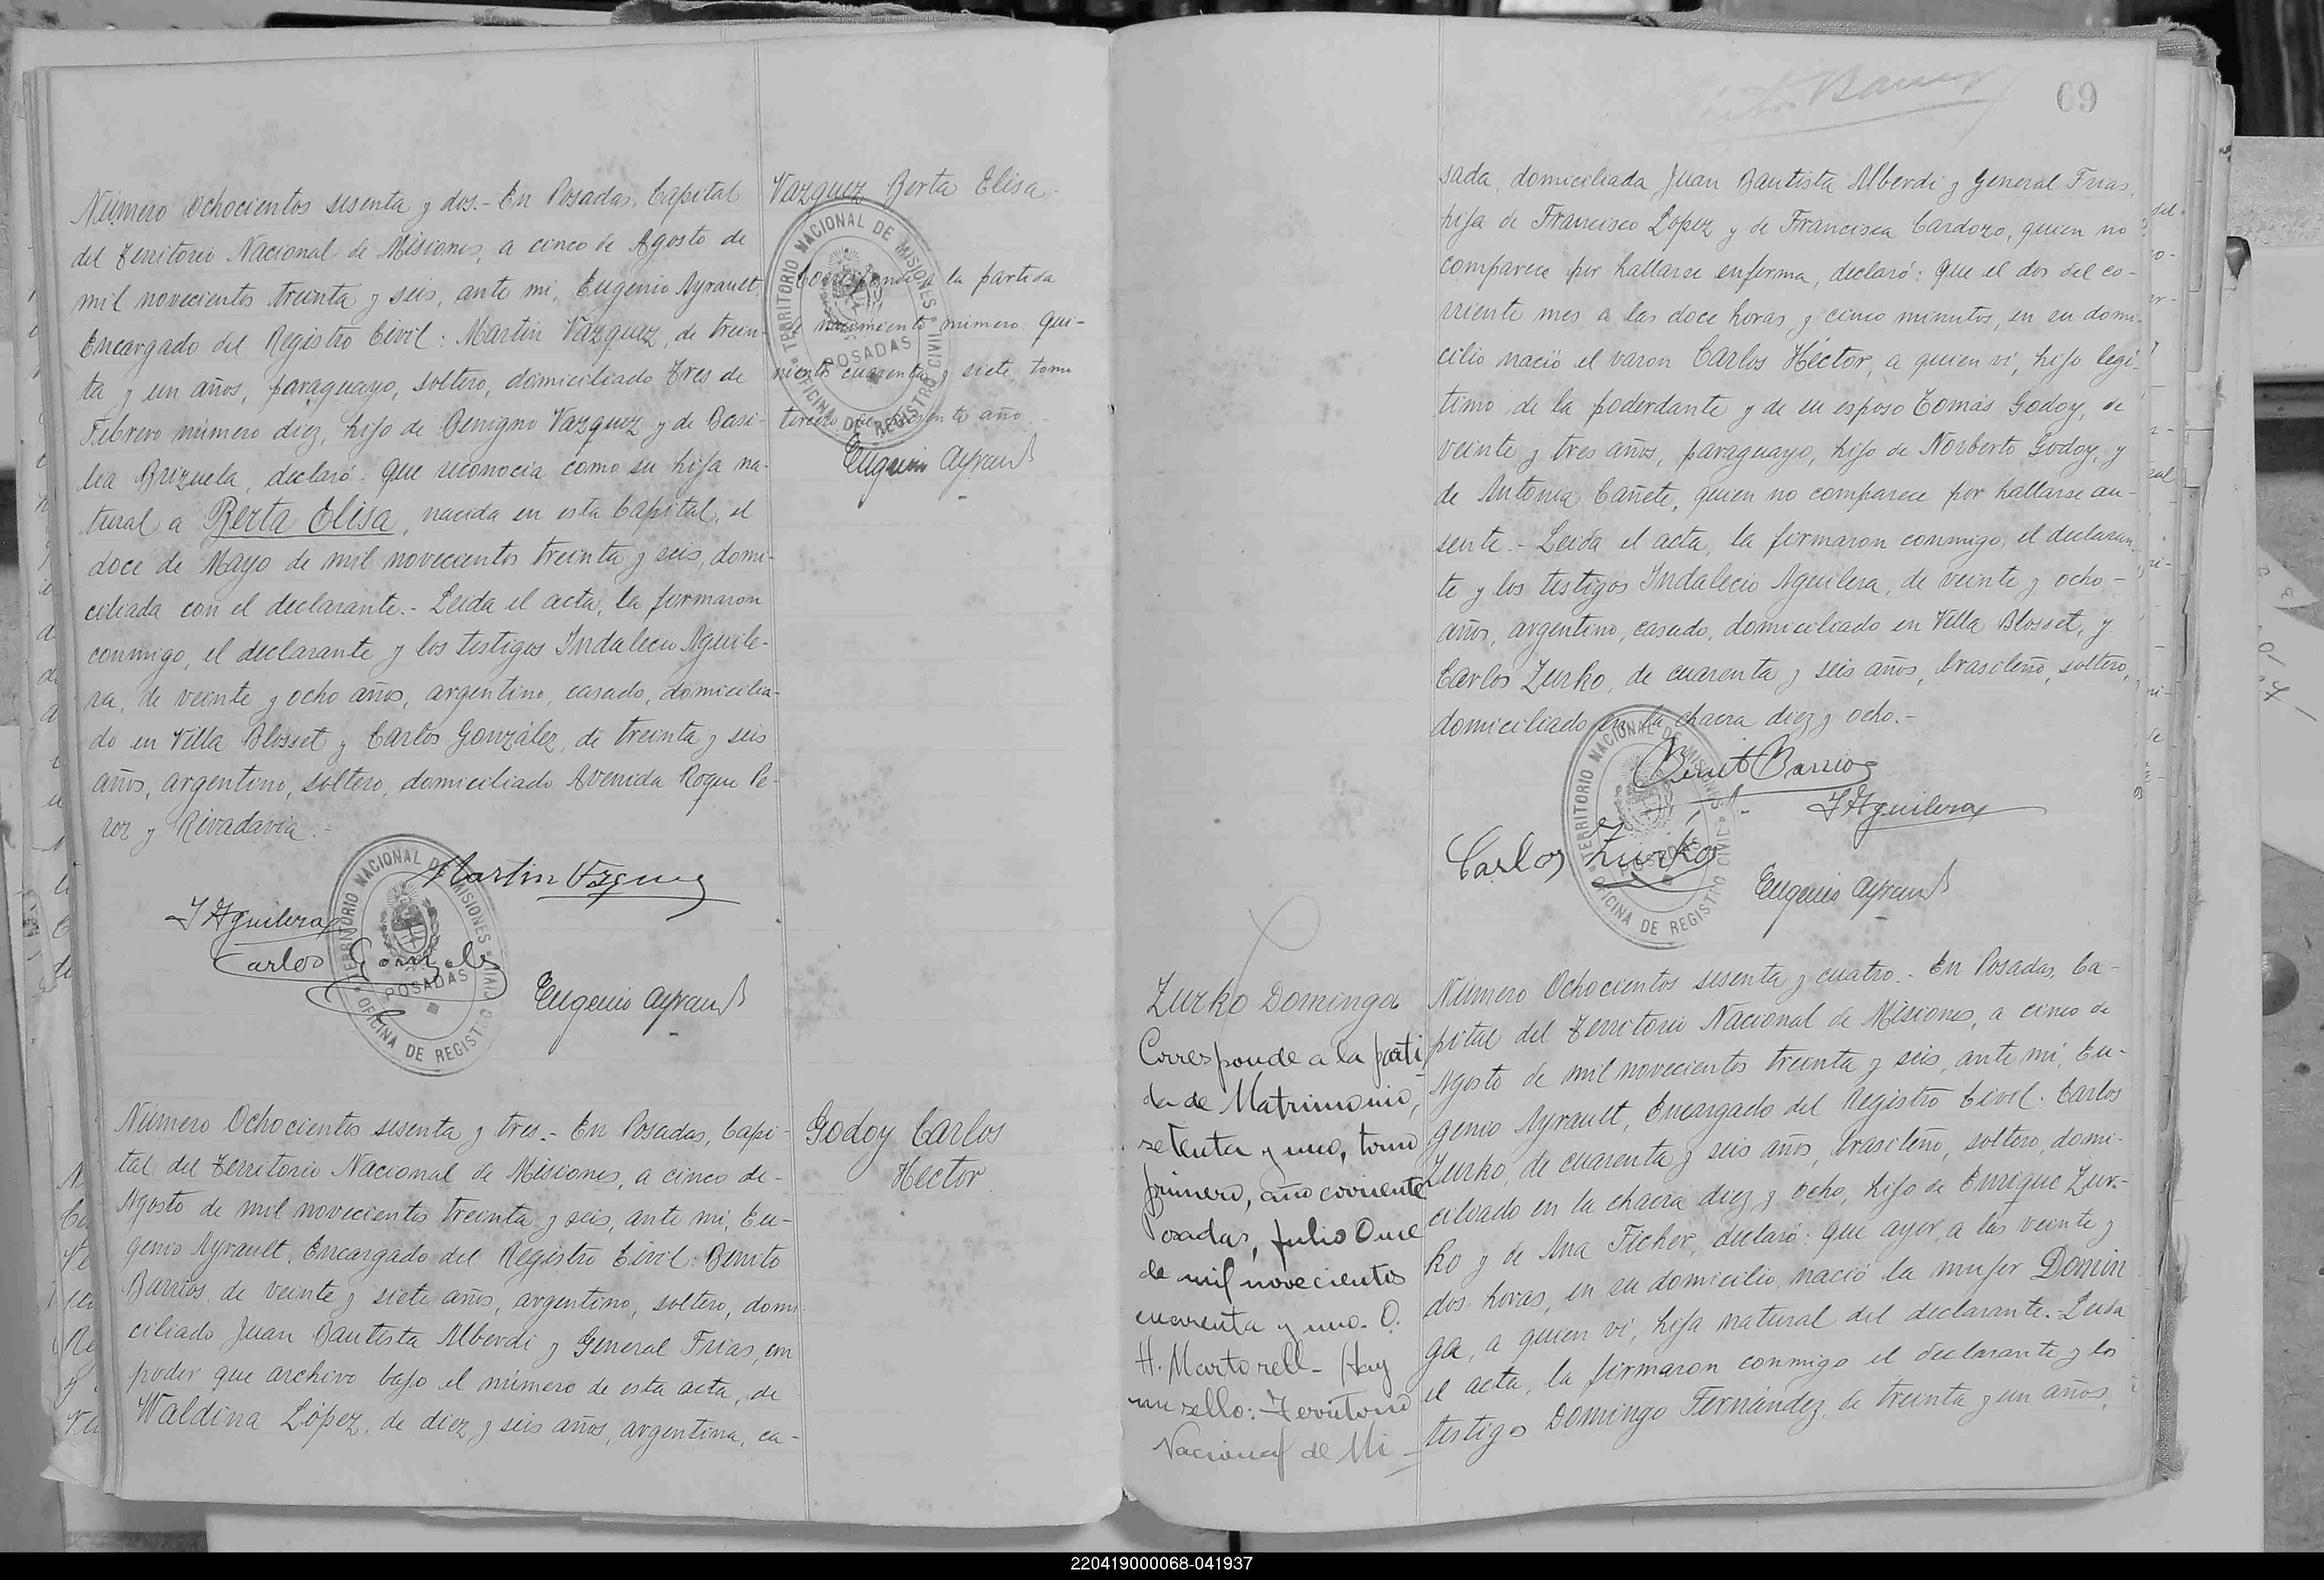 Número Ochocientos sesenta y dos.- En Posadas, Capital
del Territorio Nacional de Misiones, a cinco de Agosto de
mil novecientos treinta y seis, ante mi, Eugenio Ayrault,
Encargado del Registro Civil: Martín Vazquez, de trein-
ta y un años, paraguayo, soltero, domiciliado Tres de
Febrero número diez, hijo de Benigno Vazquez y de Basi-
lia Brizuela, declaró: que reconocia como su hija na-
tural a Berta Elisa, nacida en esta Capital, el
doce de Mayo de mil novecientos treinta y seis, domi-
ciliada con el declarante.- Leida el acta, la firmaron
conmigo, el declarante y los testigos Indalecio Aguile-
ra, de veinte y ocho años, argentino, casado, domicilia-
do en Villa Blosset y Carlos González, de treinta y seis
años, argentino, soltero, domiciliado Avenida Roque Pe-
rez y Rivadavia.-
Martin Vazquez
I Aguilera
Carlos Gonzalez
Eugenio Ayrault
TERRITORIO NACIONAL DE MISIONES
POSADAS
OFICINA DE REGISTRO CIVIL
Vazquez Berta Elisa.
Corresponde a la partida
de nacimiento número qui-
niento cuarenta y siete, tomo
tercero del presente año.
Eugenio Ayrault
TERRITORIO NACIONAL DE MISIONES
POSADAS
OFICINA DE REGISTRO CIVIL
Número Ochocientos sesenta y tres.- En Posadas, Capi-
tal del Territorio Nacional de Misiones, a cinco de-
Agosto de mil novecientos treinta y seis, ante mi, Eu-
genio Ayrault, Encargado del Registro Civil: Benito
Barrios, de veinte y siete años, argentino, soltero, domi-
ciliado Juan Bautista Alberdi y General Frias, con
poder que archivo bajo el número de esta acta, de
Waldina López, de diez y seis años, argentina, ca-
Godoy Carlos
Héctor
69
sada, domiciliada Juan Bautista Alberdi y General Frias,
hija de Francisco López y de Francisca Cardozo, quien no
comparece por hallarse enferma, declaró: que el dos del co-
rriente mes a las doce horas y cinco minutos, en su domi-
cilio nació el varon Carlos Héctor, a quien vi, hijo legi-
timo de la poderdante y de su esposo Tomás Godoy, de
veinte y tres años, paraguayo, hijo de Norberto Godoy, y
de Antonia Cañete, quien no comparece por hallarse au-
sente.- Leida el acta, la firmaron conmigo, el declaran-
te y los testigos Indalecio Aguilera, de veinte y ocho-
años, argentino, casado, domiciliado en Villa Blosset, y
Carlos Zurko, de cuarenta y seis años, brasileño, soltero,
domiciliado en la chacra diez y ocho.-
Benito Barrios
I Aguilera
Carlos Zurko
Eugenio Ayrault
TERRITORIO NACIONAL DE MISIONES
POSADAS
OFICINA DE REGISTRO CIVIL
Zurko Dominga
Corresponde a la parti
da de Matrimonio,
setenta y uno, tomo
primero, año corriente
Posadas, Julio Once
de mil novecientos
cuarenta y uno. O.
H. Martorell- Hay
un sello: Territorio
Nacional de Mi-
Número Ochocientos sesenta y cuatro.- En Posadas, Ca-
pital del Territorio Nacional de Misiones, a cinco de
Agosto de mil novecientos treinta y seis, ante mi, Eu-
genio Ayrault, Encargado del Registro Civil: Carlos
Zurko, de cuarenta y seis años, brasileño, soltero, domi-
ciliado en la chacra diez y ocho, hijo de Enrique Zur-
ko y de Ana Ficher, declaró: que ayer, a las veinte y
dos horas, en su domicilio, nació la mujer Domin
ga, a quien vi, hija natural del declarante.- Leida
el acta, la firmaron conmigo el declarante y lo
testigos Domingo Fernández, de treinta y un años,
220419000068-041937